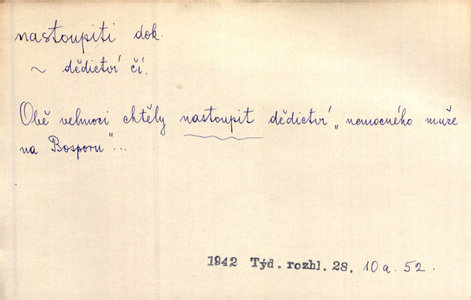 nastoupiti dok.
~ dědictví čí.
Obě velmoci chtěly nastoupit dědictví „nemocného muže
na Bosporu"...
1942 Týd. rozhl. 28. 10 a. 52.